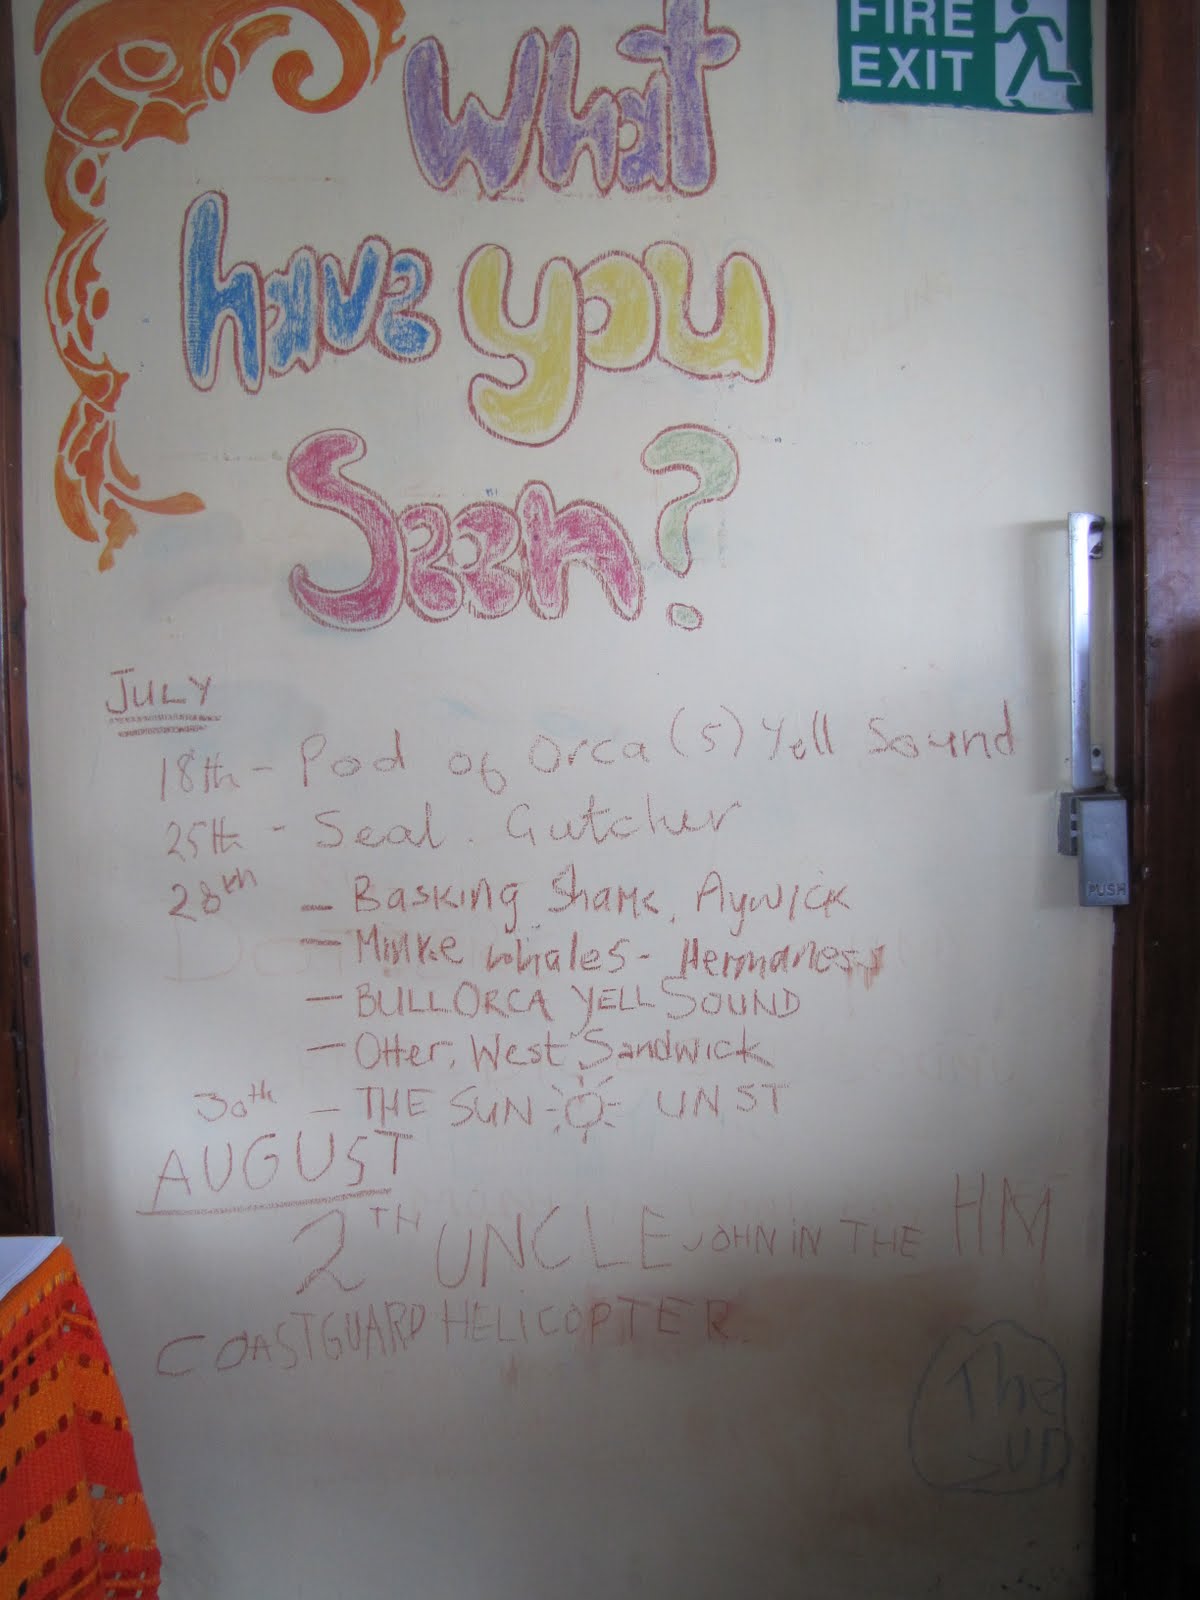 FIRE
EXIT
What
have you
Seen?
JULY
18th - Pod of Orca (5) Yell Sound
25th - Seal. Gutcher
28th - Basking Shark, Aywick
- Minke whales - Hermaness
- BULL ORCA YELL SOUND
- Otter, West Sandwick
30th - THE SUN UNST
AUGUST
2TH UNCLE JOHN IN THE HM
COASTGUARD HELICOPTER.
The
PUSH